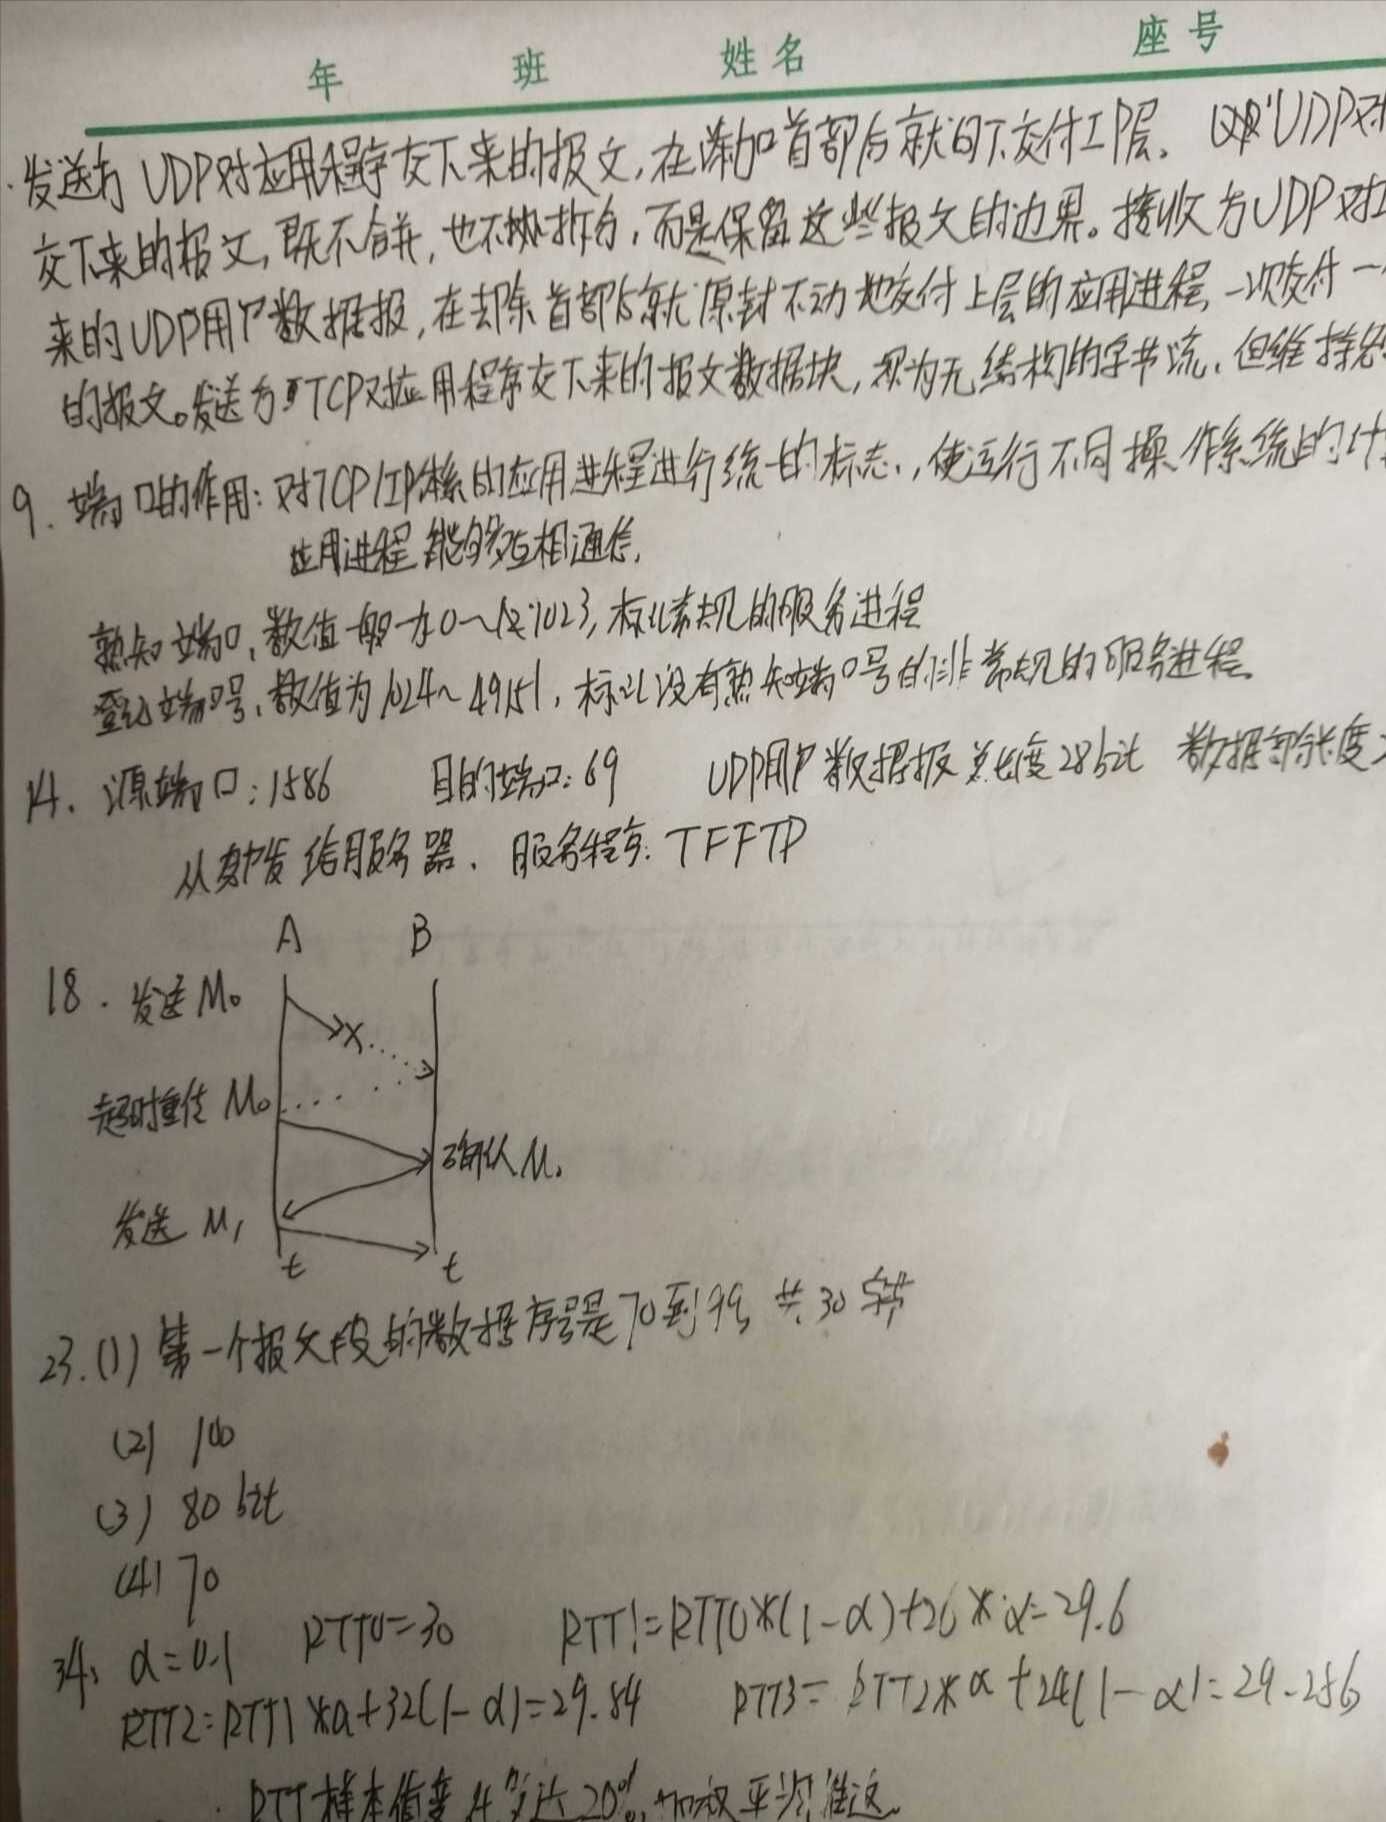 年 班 姓名 座号
发送方UDP对应用程序交下来的报文,在添加首部后就向下交付IP层。 UDP对
交下来的报文,既不合并,也不拆分,而是保留这些报文的边界。接收方UDP对I
来的UDP用户数据报,在去除首部后就原封不动地交付上层的应用进程,一次交付一
的报文。发送方TCP对应用程序交下来的报文数据块,视为无结构的字节流,但维持
9. 端口的作用:对TCP/IP体系的应用进程进行统一的标志,使运行不同操作系统的计
应用进程能够互相通信.
熟知端口,数值一般为0~1023,标记常规的服务进程
登记端口号,数值为1024~49151,标记没有熟知端口号的非常规的服务进程
14. 源端口:1586 目的端口:69 UDP用户数据报总长度28bit 数据部分长度
从 发给服务器. 服务程序:TFFTP
A B
18. 发送M₀
X
超时重传M₀
确认M₀
发送M₁
t t
23.(1)第一个报文段的数据序号是70到99,共30字节
(2) 100
(3) 80bit
(4) 70
34、α=0.1 RTT0=30 RTT1=RTT0*(1-α)+26*α=29.6
RTT2=RTT1*α+32(1-α)=29.84 RTT3=RTT2*α+24(1-α)=29.256
RTT样本值变化 达20%,加权平均